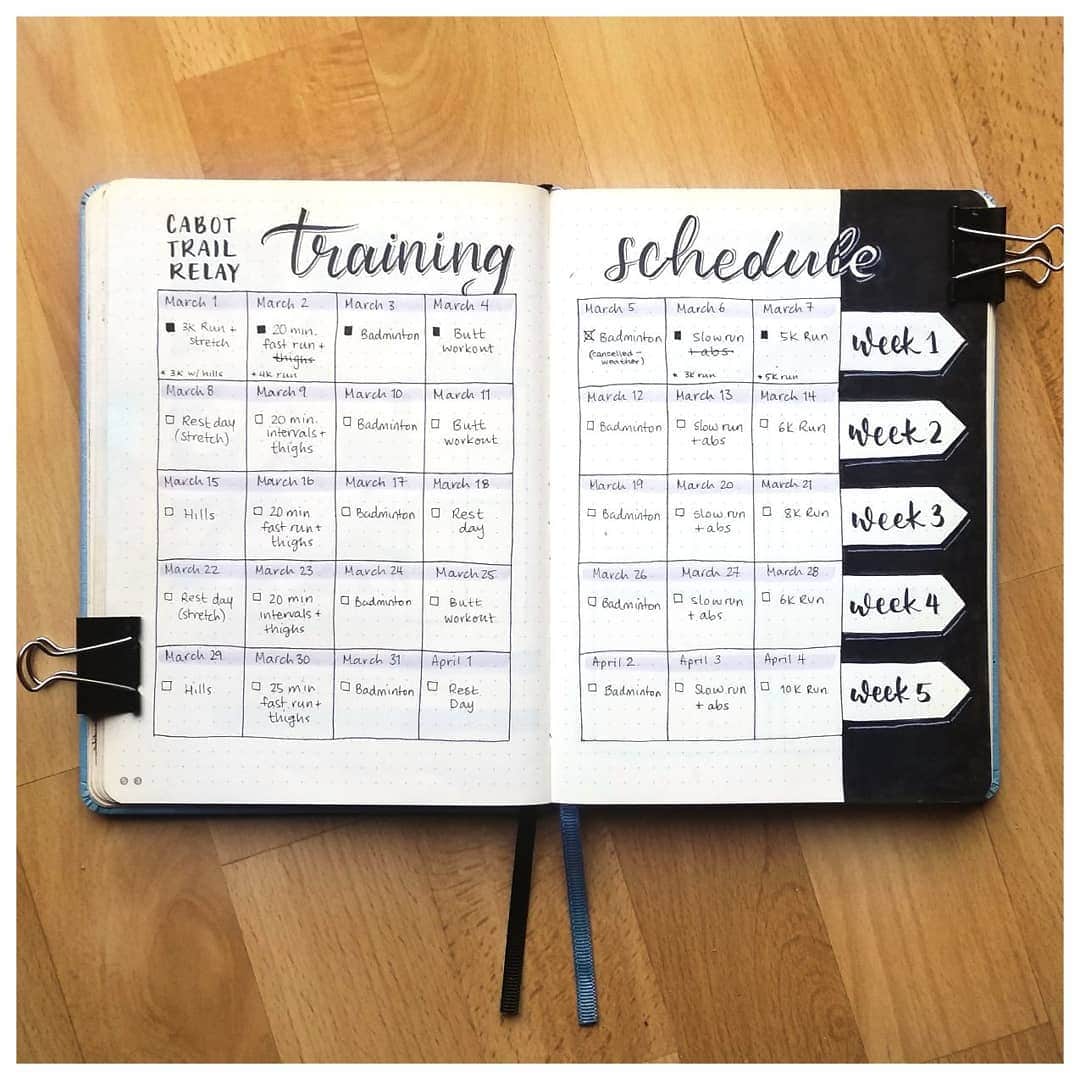 CABOT
TRAIL
RELAY
training schedule
March 1
3k Run +
stretch
* 3k w/ hills
March 2
20 min.
fast run +
thighs
* 4k run
March 3
Badminton
March 4
Butt
workout
March 5
Badminton
(cancelled -
weather)
March 6
Slow run
+ abs
* 3k run
March 7
5k Run
* 5k run
Week 1
March 8
Rest day
(stretch)
March 9
20 min.
intervals +
thighs
March 10
Badminton
March 11
Butt
workout
March 12
Badminton
March 13
Slow run
+ abs
March 14
6k Run
Week 2
March 15
Hills
March 16
20 min
fast run +
thighs
March 17
Badminton
March 18
Rest
day
March 19
Badminton
March 20
Slow run
+ abs
March 21
8k Run
Week 3
March 22
Rest day
(stretch)
March 23
20 min
intervals +
thighs
March 24
Badminton
March 25
Butt
workout
March 26
Badminton
March 27
Slow run
+ abs
March 28
6k Run
Week 4
March 29
Hills
March 30
25 min
fast run +
thighs
March 31
Badminton
April 1
Rest
Day
April 2
Badminton
April 3
Slow run
+ abs
April 4
10k Run
Week 5